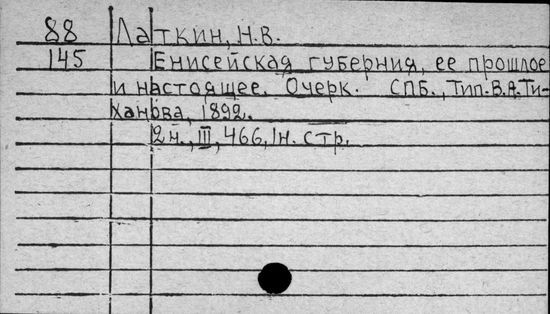 88 Латкин, Н.В.
145 Енисейская губерния, ее прошлое
и настоящее. Очерк. СПБ., Тип. В.А.Ти-
ханова, 1892.
2н., III, 466, 1н. стр.